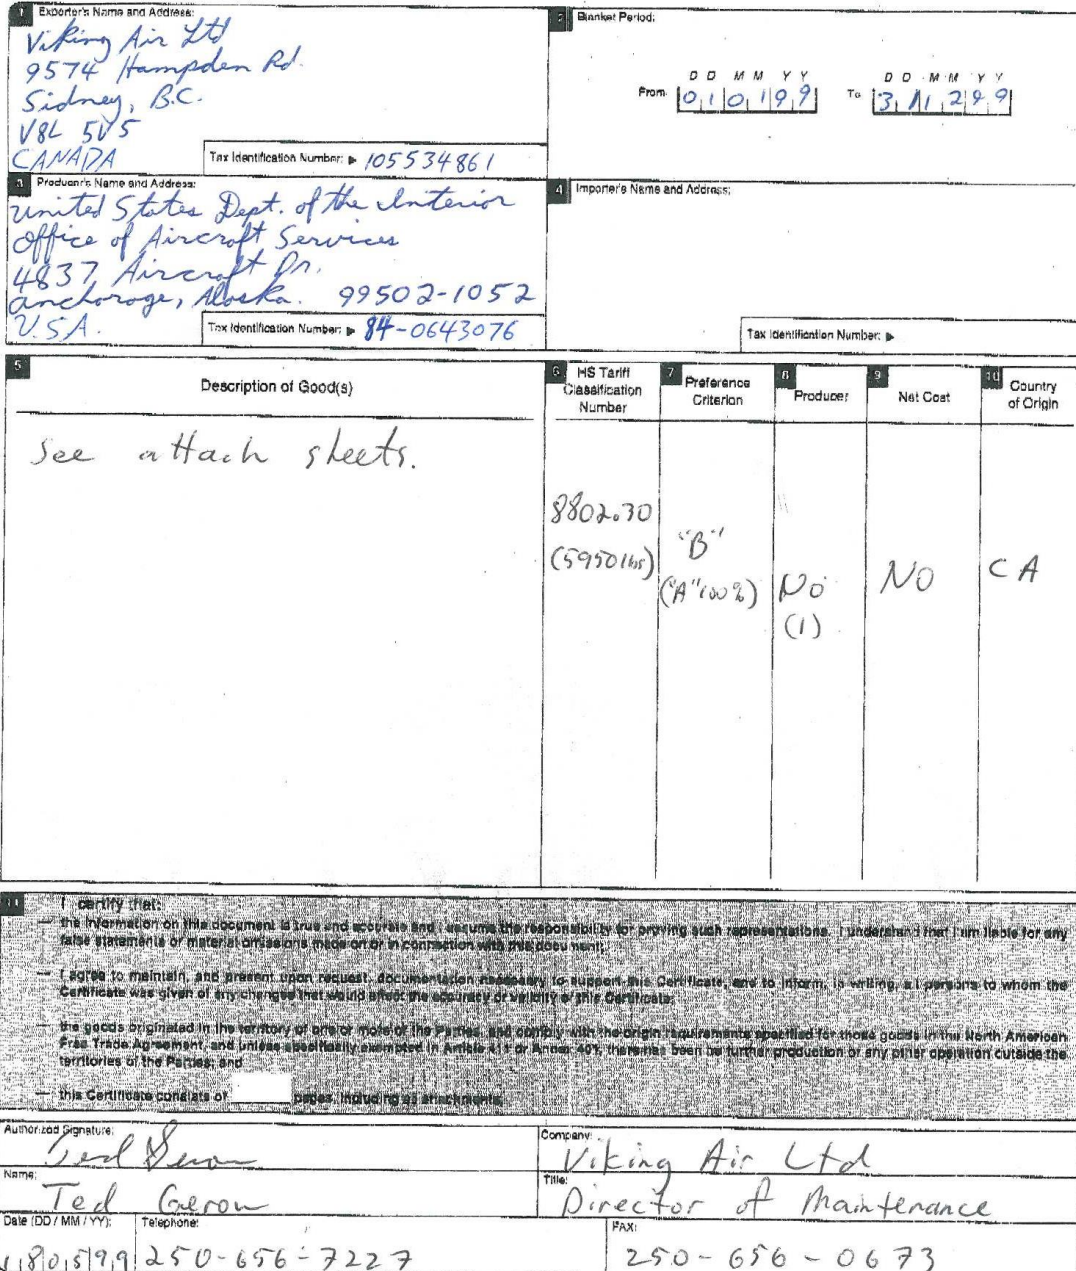 1 Exporter's Name and Address:
Viking Air Ltd
9574 Hampden Rd.
Sidney, B.C.
V8L 5V5
CANADA
Tax Identification Number: ▶ 105534861
2 Blanket Period:
D D M M Y Y
From 0 1 0 1 9 9
D D M M Y Y
To 3 1 1 2 9 9
3 Producer's Name and Address:
United States Dept. of the Interior
Office of Aircraft Services
4837 Aircraft Dr.
Anchorage, Alaska. 99502-1052
U.S.A.
Tax Identification Number: ▶ 84-0643076
4 Importer's Name and Address:
Tax Identification Number: ▶
5 Description of Good(s)
6 HS Tariff Classification Number
7 Preference Criterion
8 Producer
9 Net Cost
10 Country of Origin
See attach sheets.
8802.30
(5950 lbs)
"B"
("A" 100%)
No
(1)
NO
CA
11 I certify that:
— the information on this document is true and accurate and I assume the responsibility for proving such representations. I understand that I am liable for any
false statements or material omissions made on or in connection with this document;
— I agree to maintain, and present upon request, documentation necessary to support this Certificate, and to inform, in writing, all persons to whom the
Certificate was given of any changes that would affect the accuracy or validity of this Certificate;
— the goods originated in the territory of one or more of the Parties, and comply with the origin requirements specified for those goods in the North American
Free Trade Agreement, and unless specifically exempted in Article 411 or Annex 401, there has been no further production or any other operation outside the
territories of the Parties; and
— this Certificate consists of pages, including all attachments.
Authorized Signature:
Ted Gerow
Company:
Viking Air Ltd
Name:
Ted Gerow
Title:
Director of Maintenance
Date (DD / MM / YY):
1 8 0 5 9 9
Telephone:
250-656-7227
FAX:
250-656-0673